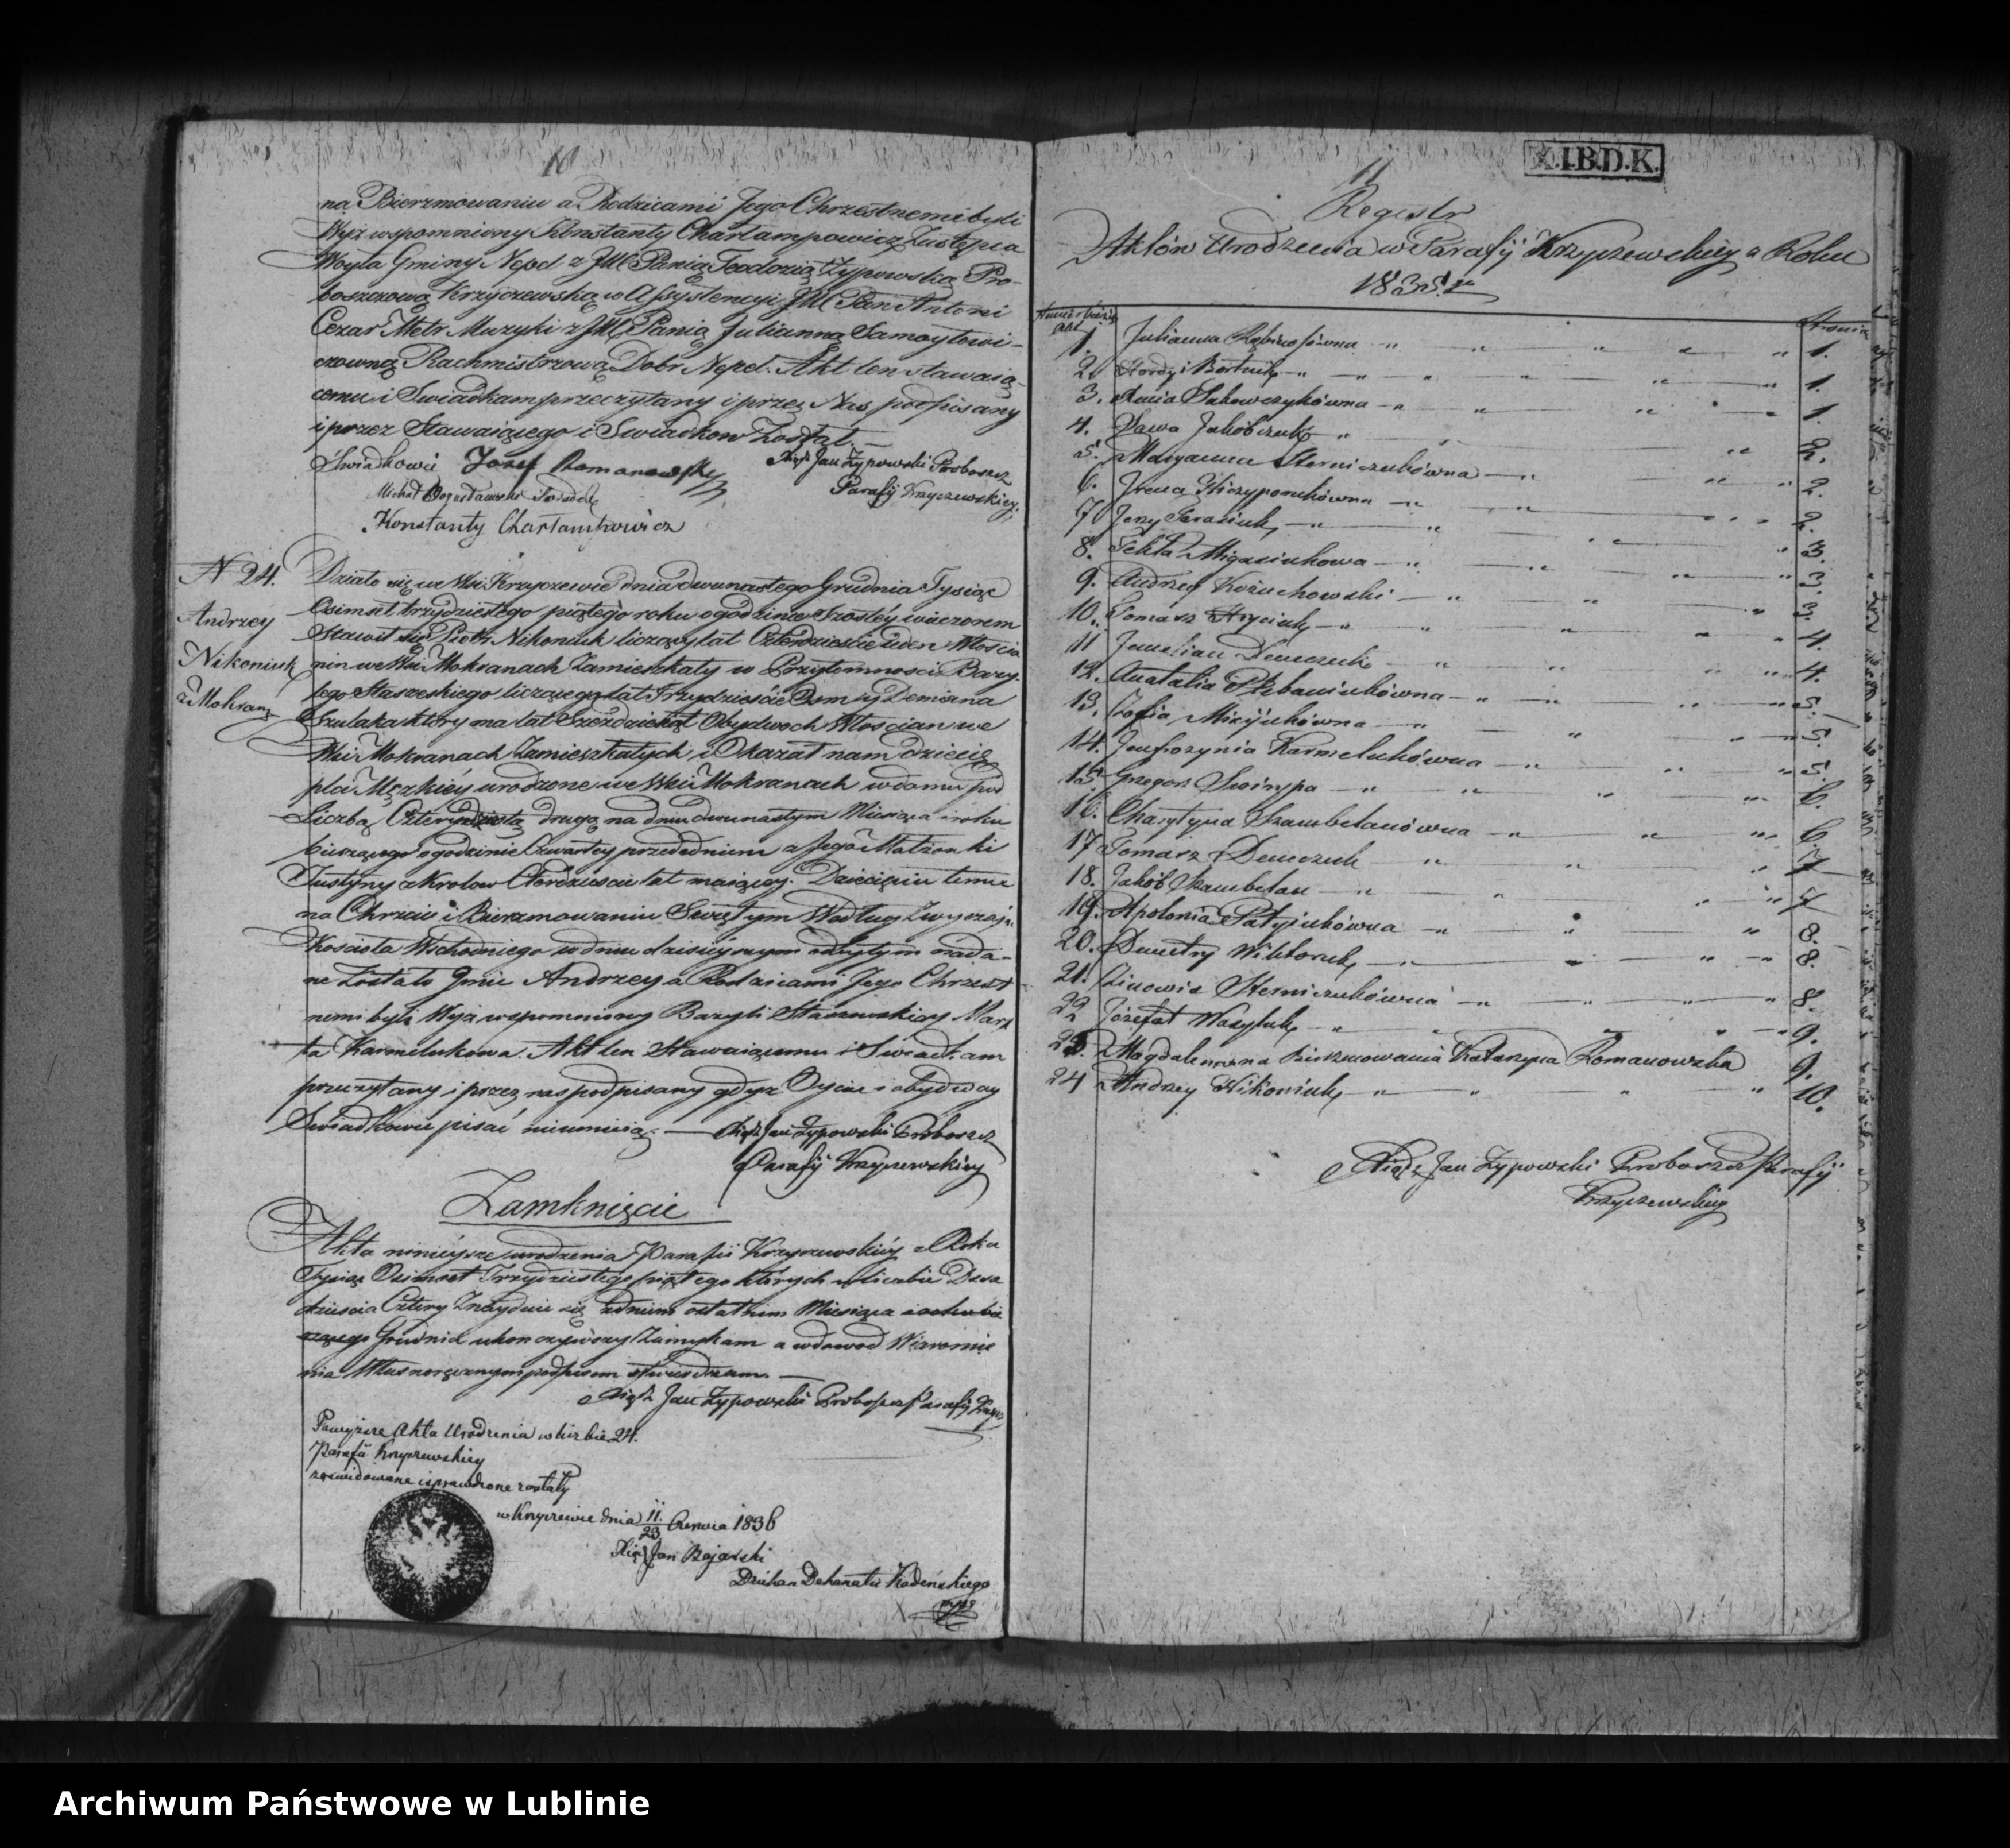 10
na Bierzmowaniu a Rodzicami Jego Chrzestnemi byli
Wyż wspomniony Konstanty Charłampowicz Zastępca
Woyta Gminy Nepel z JM Panią Teodozią Zypowską Pro-
boszczową Krzyczewską w Assystencyi JM Pan Antoni
Cezar Metr Muzyki z JM Panią Julianną Samoyłowi-
czowną Rachmistrzową Dobr Nepel. Akt ten stawaią-
cemu i Swiadkom przeczytany i przez Nas podpisany
i przez Stawaiącego i Swiadkow Został. —
Swiadkowie Jozef Romanowsky
Xiądz Jan Zypowski Proboszcz
Parafij Krzyczewskiey.
Michał Bogusławski Swiadek
Konstanty Charłampowicz
N 24.
Andrzey
Nikoniuk
z Mokran
Działo się we Wsi Krzyczewie dnia dwunastego Grudnia Tysiąc
Osimset trzydziestego piątego roku o godzinie Szostéy wieczorem
Stawił się Piotr Nikoniuk liczący lat Czterdzieście Jeden Włościa
nin we Wsi Mokranach Zamieszkały w Przytomnosci Bazy-
lego Staszeskiego liczącego lat Trzydzieście Osm i Demiana
Szulaka który ma lat Szezdziesiąt Obydwoch Włoscian we
Wsi Mokranach Zamieszkałych i Okazał nam dziecie
płci Męzkiéy urodzone we Wsi Mokranach w domu pod
Liczbą Czterydziestą drugą na dniu dwunastym Miesiąca i roku
bieżącego o godzinie Czwartey przededniem z Jego Małżonki
Justyny z Krolow Czterdzieście lat maiącey. Dziecięciu temu
na Chrzcie i Bierzmowaniu Swiętym Według Zwyczaju
Kościoła Wschodniego w dniu dzisieyszym odbytym nada-
ne Zostało Jmie Andrzey a Rodzicami Jego Chrzest
nemi byli Wyż wspomniony Bazyli Staszewski z Mar
ta Karmelukowa. Akt ten Stawaiącemu i Swiadkam
przeczytany i przez nas podpisany gdyż Oyciec i obydway
Swiadkowie pisać nieumieią. — Xiądz Jan Zypowski Proboszcz
Parafij Krzyczewskiey
Zamknięcie
Akta ninieysze urodzenia Parafii Krzyczewskiéy z Roku
Tysiąc Osimset Trzydziestego piątego których w liczbie Dwa
dzieścia Cztery Znayduie się z dniem ostatnim Miesiąca i roku bie
żącego Grudnia ukończywszy Zamykam a w dowod Wiarom
nia Własnoręcznym podpisem stwierdzam. —
Xiądz Jan Zypowski Proboszcz Parafij Krzycz
Powyższe Akta Urodzenia w liczbie 24.
Parafii Krzyczewskiey
zrewidowane i sprawdzone zostały
w Krzyczewie dnia 11./23 Czerwca 1836
Xiądz Jan Bojarski
Dziekan Dekanatu Kodeńskiego
K.I.B.D.K.
11
Regestr
Aktów Urodzenia w Parafij Krzyczewskiey z Roku
1835.
Strona
1. Julianna 1.
2. Hordzi Bortnik 1.
3. Ania Sakowczykówna 1.
4. Sawa Jakóbczuk 2.
5. Maryanna Sterniczukówna 2.
6. Irena Hiczyporukówna 2.
7 Jerzy Tarasiuk 3.
8. Tekla Migasiukowa 3.
9. Andrzey Kożuchowski 3.
10. Tomasz Hryciuk 4.
11 Jemelian Demczuk 4.
12. Anatalia Plebaniukówna 5.
13. Zofia Misijukówna 5.
14. Jeufrozynia Karmelukówna 5.
15. Grzegorz Swirypa 6.
16. Charytyna Szambelanówna 6.
17 Tomasz Demczuk 7
18. Jakób Szambelan 7
19. Apolonia Patyjukówna 8.
20. Dmitry Wiktoruk 8.
21. Zinowia Sterniczukówna 8.
22 Józefat Wasyluk 9.
23. Magdalena na Bierzmowaniu Katarzyna Romanowska 9.
24 Andrzey Nikoniuk 10.
Xiądz Jan Zypowski Proboszcz Parafij
Krzyczewskiey
Archiwum Państwowe w Lublinie